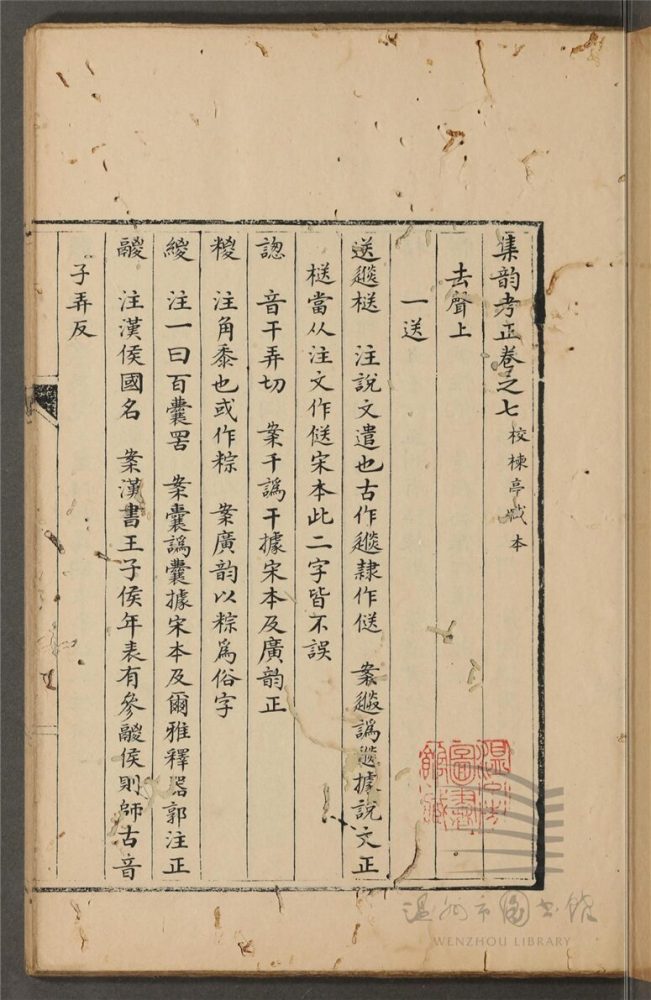 集韵考正卷之七 校楝亭臧本
去聲上
一送
送𨕭㮸 注說文遣也古作𨕭隸作𠊩 案𨕭譌𨕭據說文正
㮸當从注文作𠊩宋本此二字皆不誤
謥 音干弄切 案千譌干據宋本及廣韵正
糉 注角黍也或作粽 案廣韵以粽爲俗字
緵 注一曰百囊罟 案囊譌囊據宋本及爾雅釋器郭注正
鬷 注漢侯國名 案漢書王子侯年表有參鬷侯則師古音
子弄反
溫州市圖書館藏
温州市图书馆
WENZHOU LIBRARY